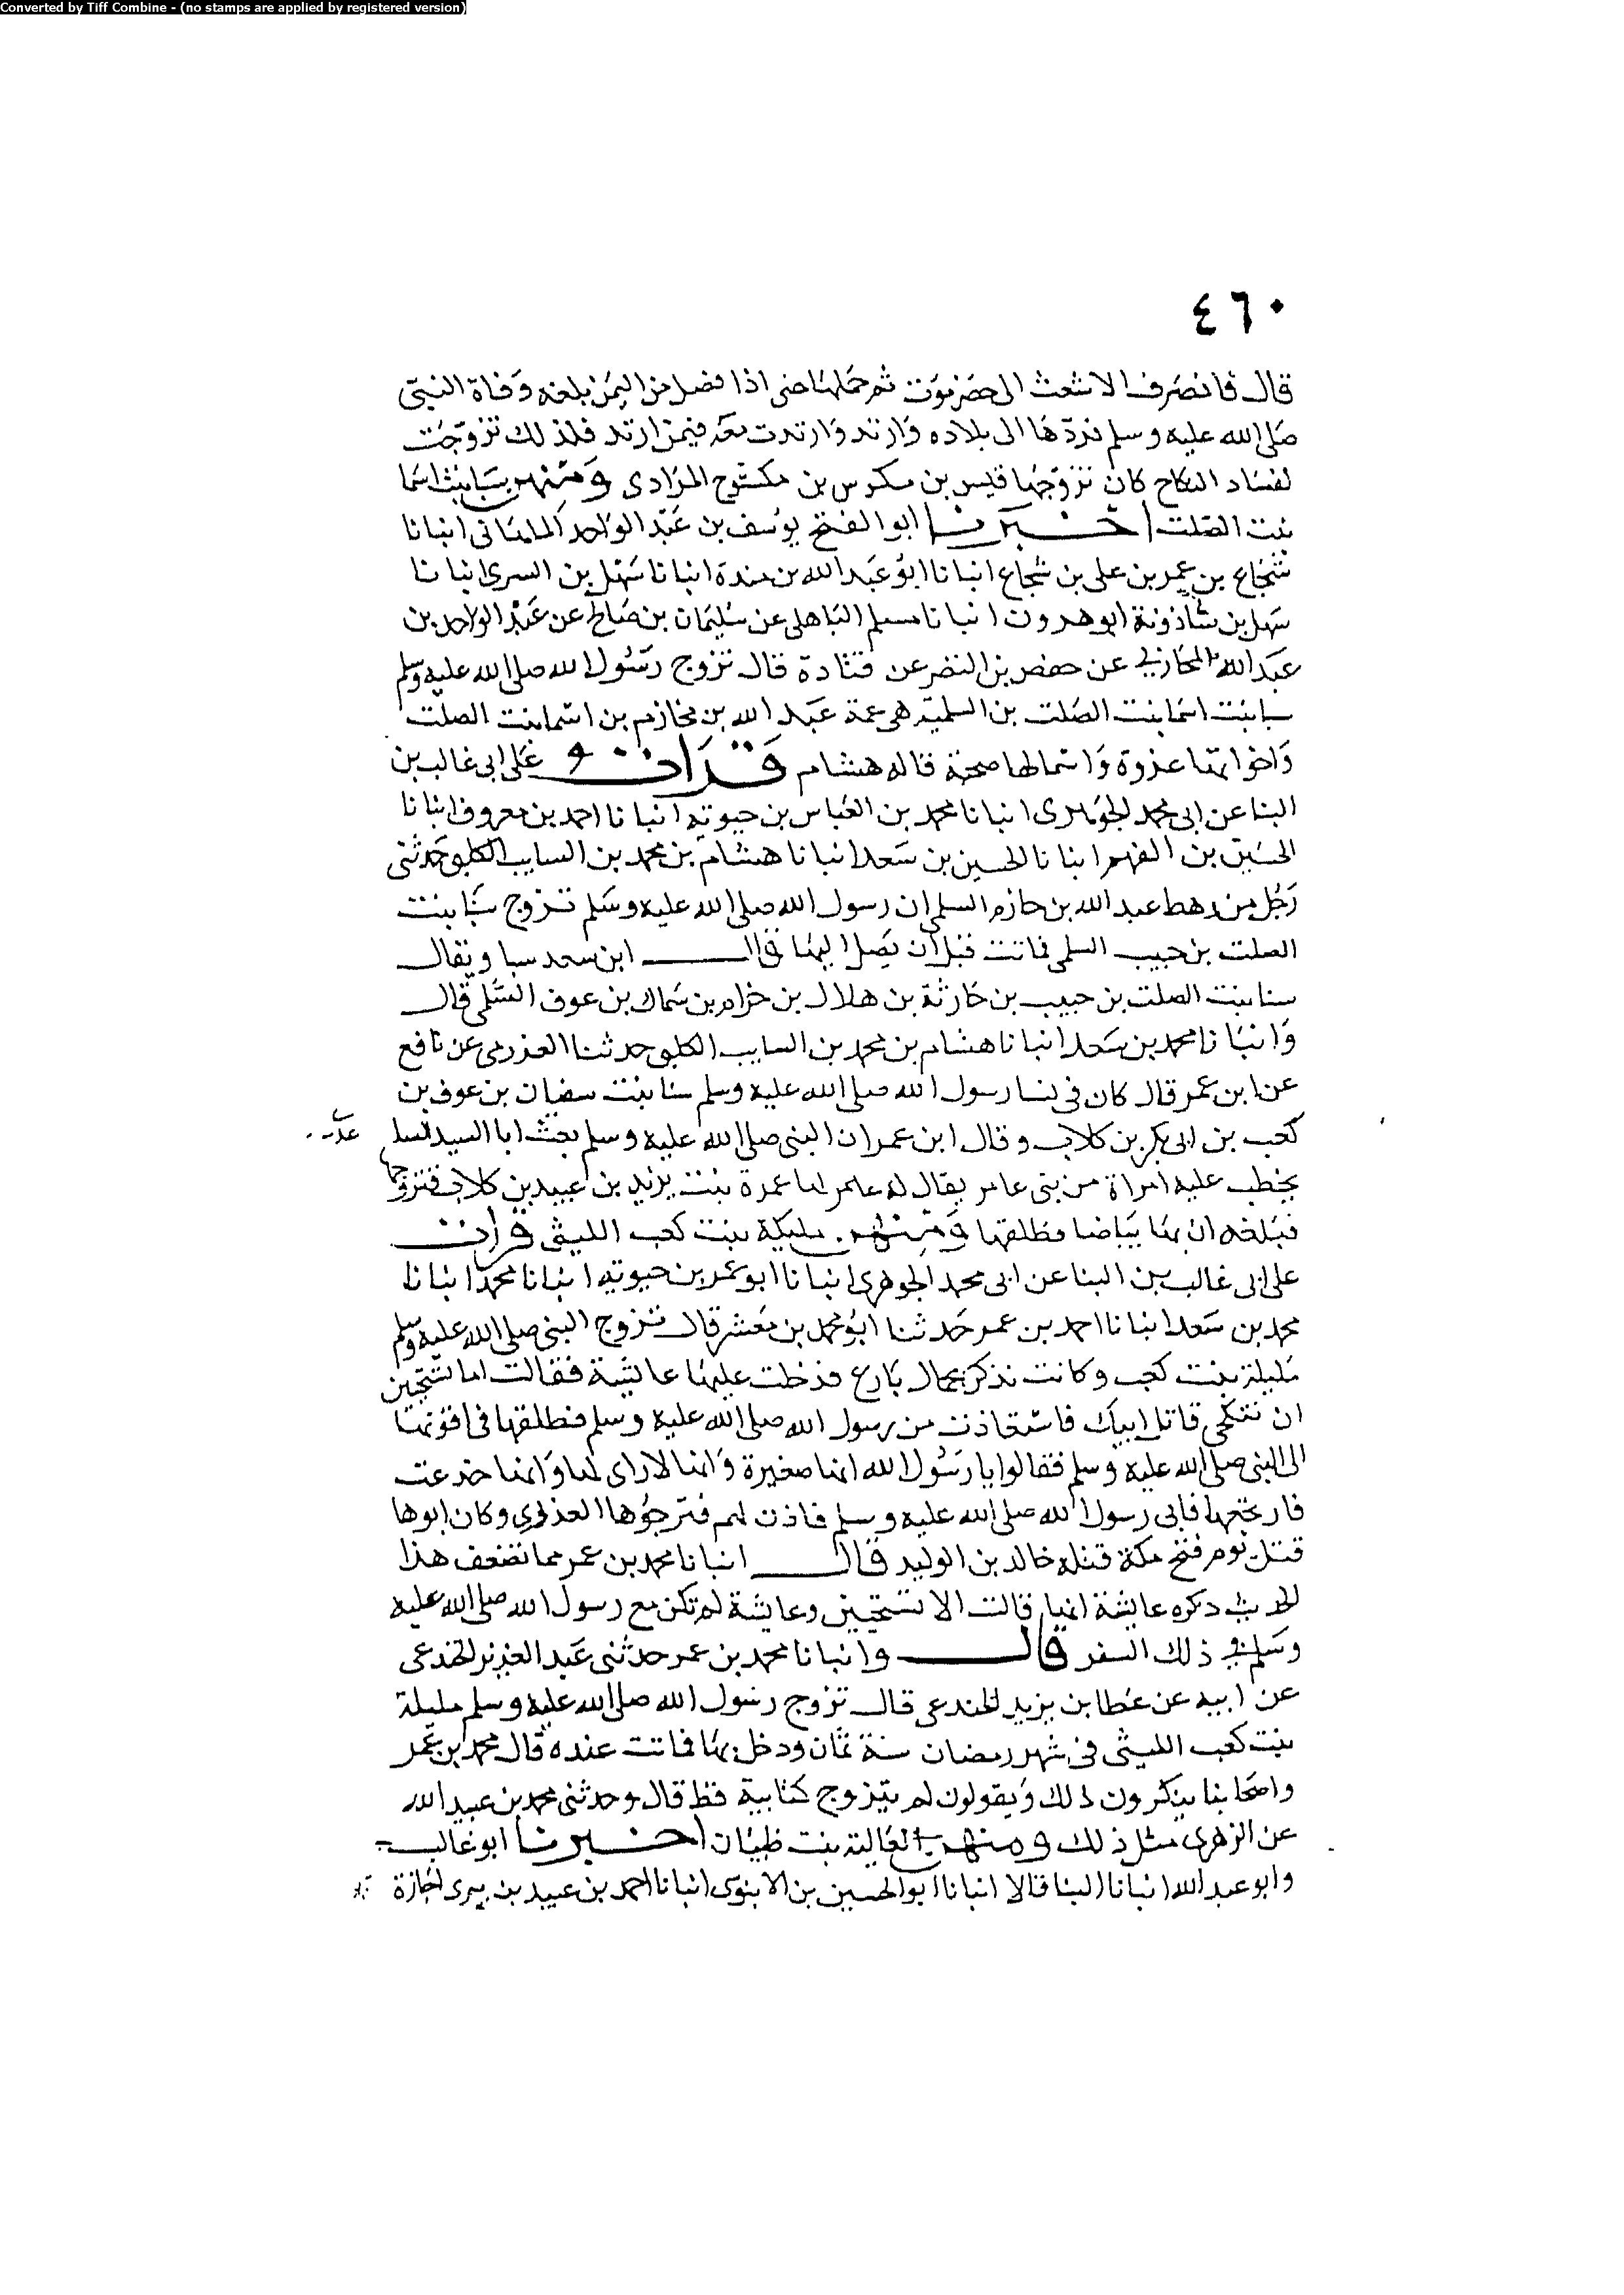 Converted by Tiff Combine - (no stamps are applied by registered version)
٤٦٠
قال فانصرف الاشعث الى حضرموت ثم حملها حتى اذا فصل من اليمن بلغه وفاة النبي
صلى الله عليه وسلم فردها الى بلاده وارتد وارتدت معه فيمن ارتد فلذلك تزوجت
لفساد النكاح كان تزوجها قيس بن مكوس بن مكتوح المرادى ومنهم سبا بنت اسما
بنت الصلت اخبرنا ابو الفتح يوسف بن عبد الواحد الماهانى انبانا
شجاع بن عمر بن على بن شجاع انبانا ابو عبد الله بن مندة انبانا سهل بن السرى انبانا
سهل بن شاذونة ابو هرون انبانا مسلم الباهلى عن سليمان بن صالح عن عبد الواحد بن
عبد الله عن حفص بن النضر عن قتادة قال تزوج رسول الله صلى الله عليه وسلم
سبا بنت اسما بنت الصلت بن السلمية هى عمة عبد الله بن خازم بن اسما بنت الصلت
واخواتها عزوة واسما لها صحبة قاله هشام قرات على ابى غالب بن
البنا عن ابى محمد الجوهرى انبانا محمد بن العباس بن حيويه انبانا احمد بن معروف انبانا
الحسين بن الفهم انبانا الحسين بن سعد انبانا هشام بن محمد بن السايب الكلبى حدثنى
رجل من رهط عبد الله بن حازم السلمى ان رسول الله صلى الله عليه وسلم تزوج سبا بنت
الصلت بن حبيب السلمى فماتت قبل ان يصل اليها قال ابن سعد سبا ويقال
سنا بنت الصلت بن حبيب بن حارثة بن هلال بن حرام بن سماك بن عوف السلمى قال
وانبانا محمد بن سعد انبانا هشام بن محمد بن السايب الكلبى حدثنا العذرمى عن نافع
عن ابن عمر قال كان فى نسا رسول الله صلى الله عليه وسلم سنا بنت سفيان بن عوف بن
كعب بن ابى بكر بن كلاب وقال ابن عمر ان النبى صلى الله عليه وسلم بعث ابا السيد
يخطب عليه امراة من بنى عامر يقال لها عمرة بنت يزيد بن عبيد بن كلاب فتزوجها
فبلغه ان بها بياضا فطلقها ومنهم مليكة بنت كعب الليثى قرات
على ابى غالب بن البنا عن ابى محمد الجوهرى انبانا ابو عمر بن حيويه انبانا محمد انبانا
محمد بن سعد انبانا احمد بن عمر حدثنا ابو محمد بن معشر قال تزوج النبى صلى الله عليه وسلم
مليلة بنت كعب وكانت تذكر بجمال بارع فدخلت عليها عايشة فقالت اما تستحين
ان تنكحى قاتل ابيك فاستعاذت من رسول الله صلى الله عليه وسلم فطلقها فاتى قومها
الى النبى صلى الله عليه وسلم فقالوا يا رسول الله انها صغيرة وانها لا راى لها وانها خدعت
فارتجعها فابى رسول الله صلى الله عليه وسلم فاذن لهم فتزجوها العذرى وكان ابوها
قتل يوم فتح مكة قتله خالد بن الوليد قال انبانا محمد بن عمر مما نضعف هذا
الحديث ذكره عايشة انها قالت الا تستحين وعايشة لم تكن مع رسول الله صلى الله عليه
وسلم فى ذلك السفر قال وانبانا محمد بن عمر حدثنى عبد العزيز الخندعى
عن ابيه عن عطا بن يزيد الجندعى قال تزوج رسول الله صلى الله عليه وسلم مليلة
بنت كعب الليثى فى شهر رمضان سنة ثمان ودخل بها فماتت عنده قال محمد بن عمر
واصحابنا ينكرون ذلك ويقولون لم يتزوج كتابية قط قال وحدثنى محمد بن عبيد الله
عن الزهرى مثل ذلك ومنهم العالية بنت ظبيان اخبرنا ابو غالب
وابو عبد الله انبانا البنا قالا انبانا ابو الحسين بن الابنوسى انبانا احمد بن عبيد بن بيرى اجازة